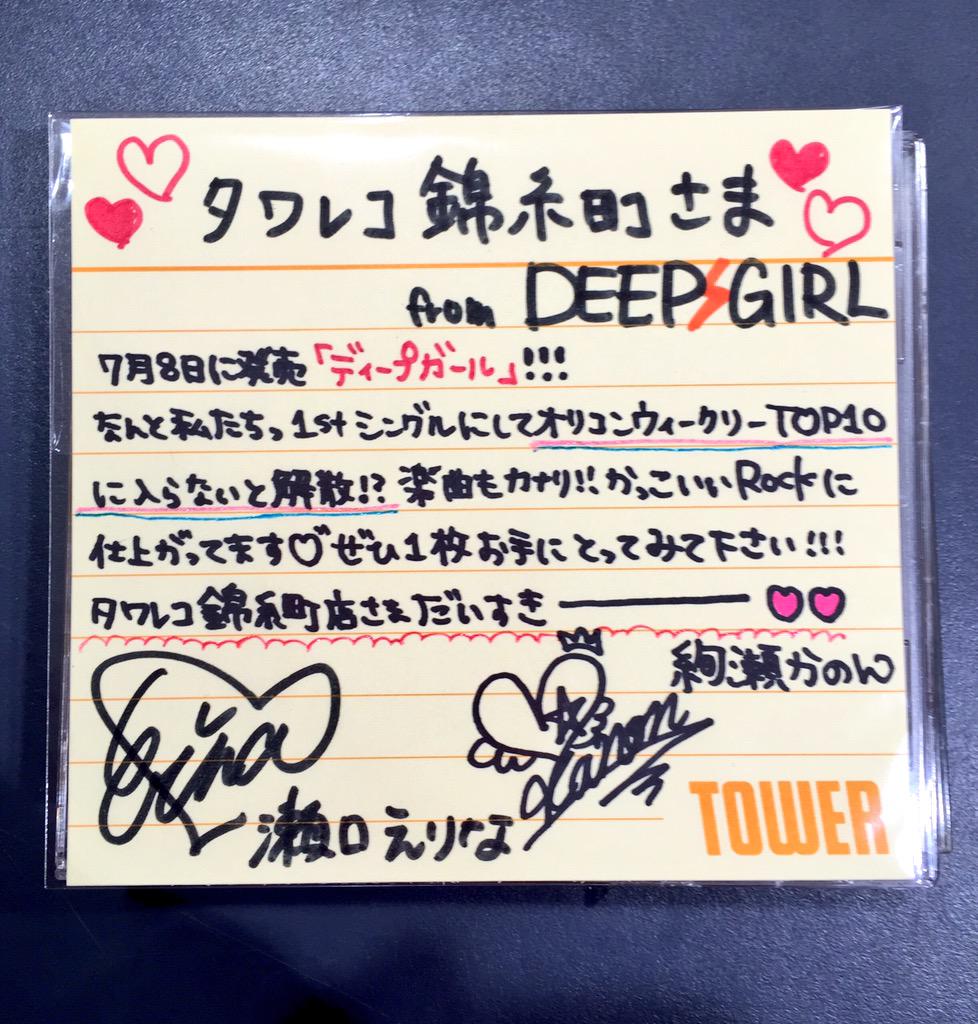 タワレコ 錦糸町さま
from DEEP⚡GIRL
7月8日に発売「ディープガール」!!!
なんと私たちっ1stシングルにしてオリコンウィークリーTOP10
に入らないと解散!? 楽曲もカナリ!! かっこいいRockに
仕上がってます♡ ぜひ1枚お手にとってみて下さい!!!
タワレコ錦糸町店さまだいすき───♥♥
絢瀬かのん
Erina
Kanon
瀬口えりな
TOWER